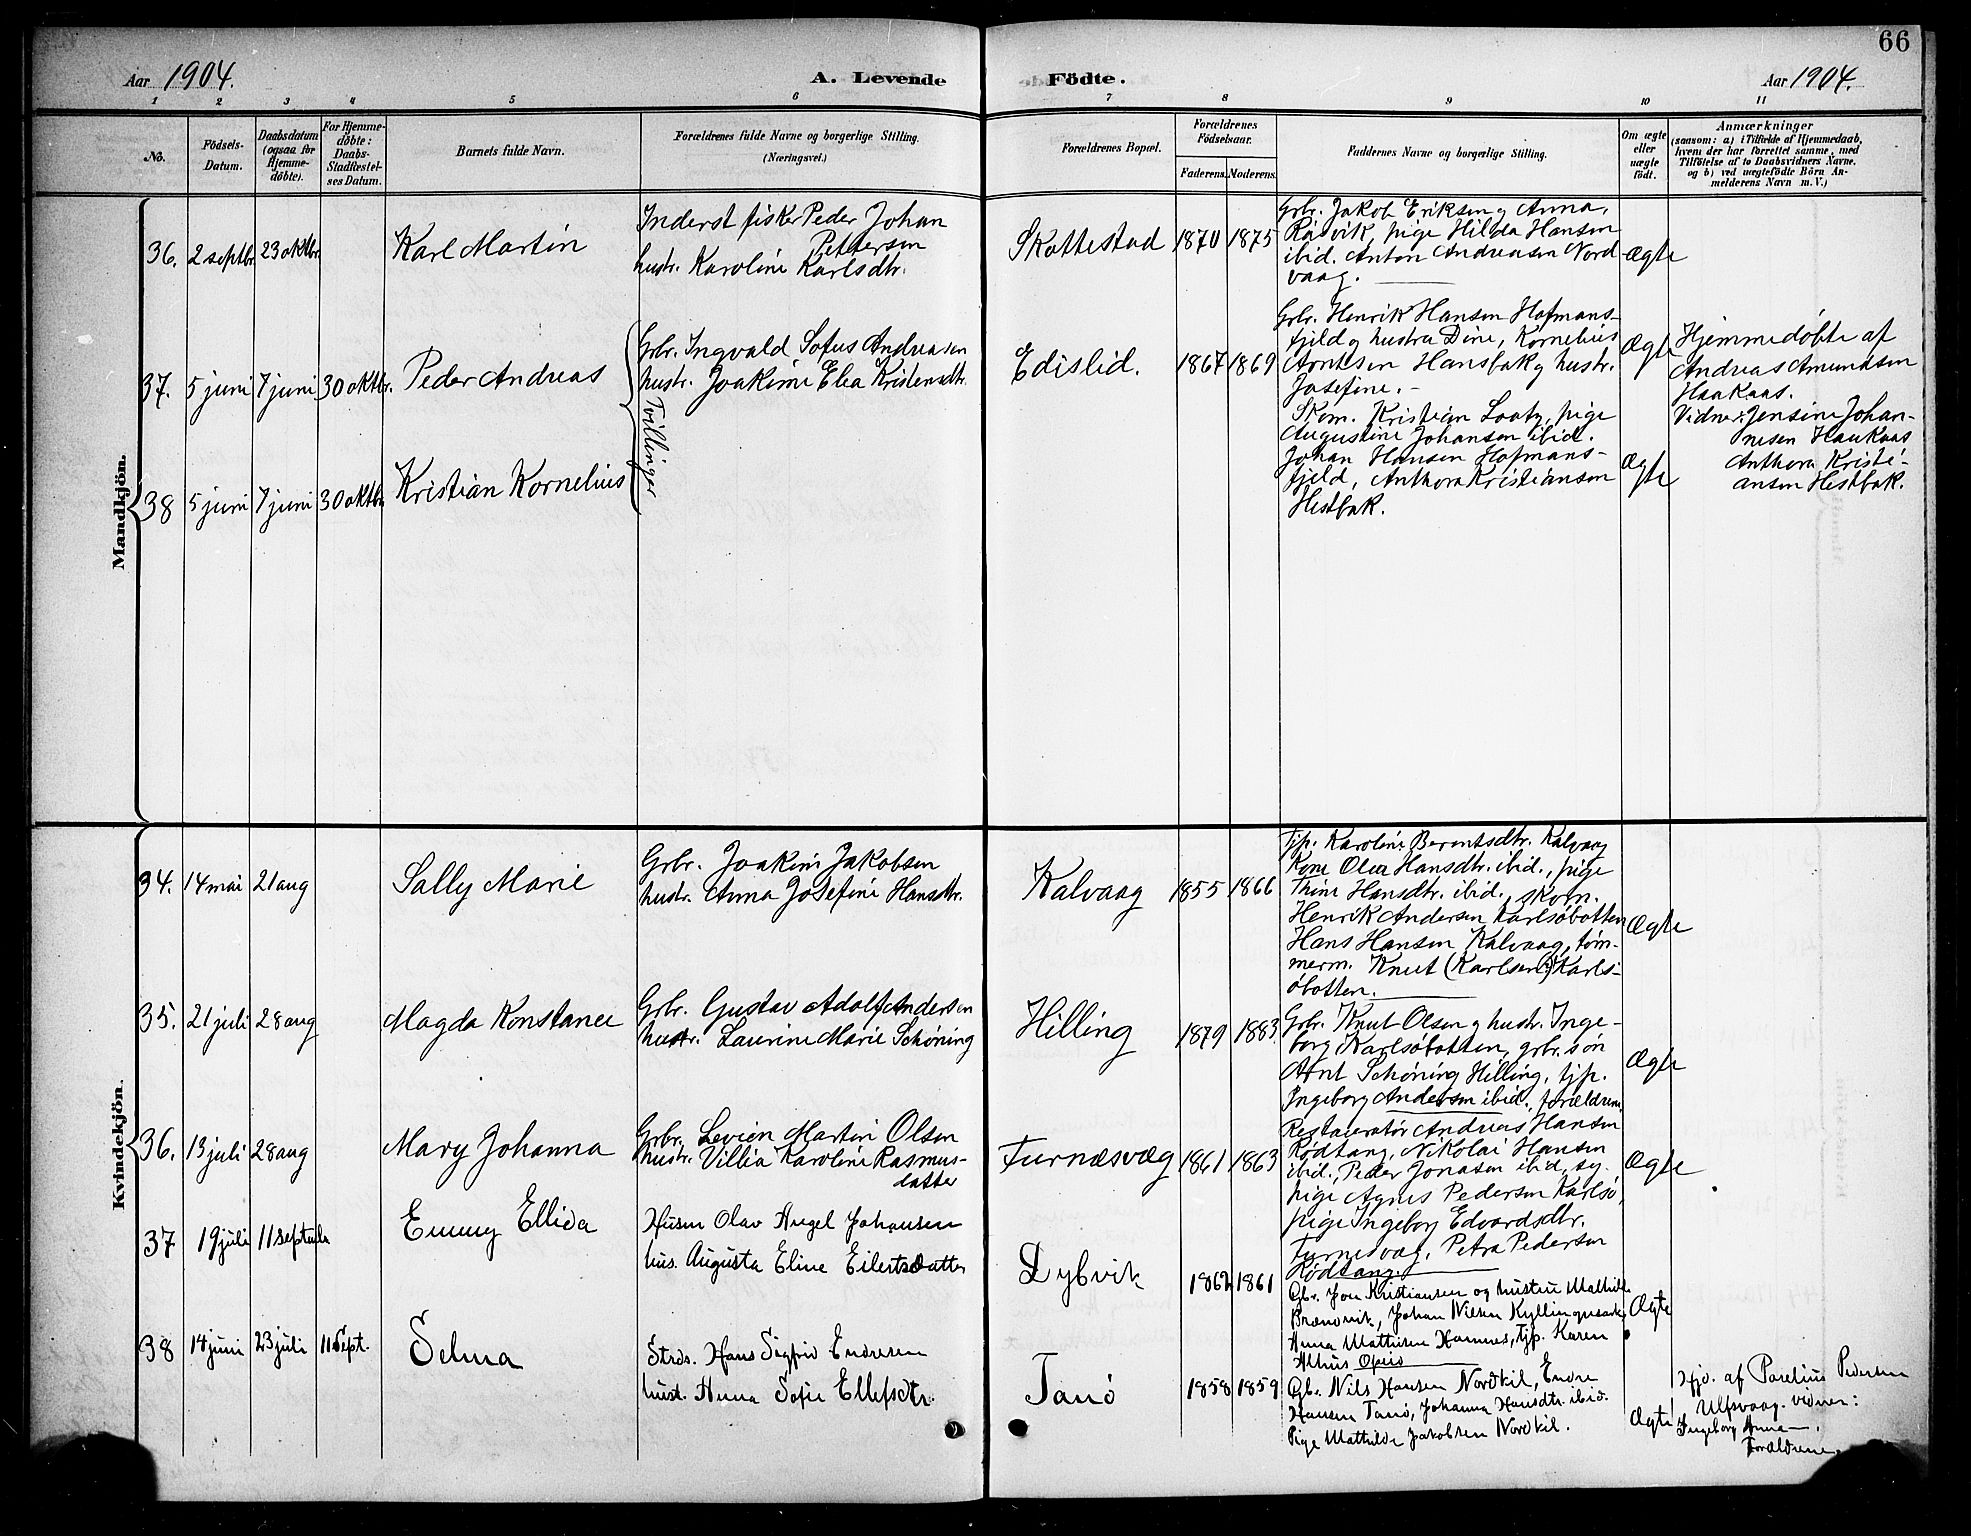 66
Aar 1904.
A. Levende Födte.
Aar 1904.
1 2 3 4 5 6 7 8 9 10 11
No.
Födsels-
Datum.
Daabsdatum
(ogsaa for
Hjemme-
døbte).
For Hjemme-
døbte:
Daabs-
Stadfæstel-
ses Datum.
Barnets fulde Navn.
Forældrenes fulde Navne og borgerlige Stilling.
(Næringsvei.)
Forældrenes Bopæl.
Forældrenes
Födselsaar.
Faderens. Moderens.
Faddernes Navne og borgerlige Stilling.
Om ægte
eller
uægte
født.
Anmærkninger
(saasom: a) i Tilfælde af Hjemmedaab,
hvem der har forrettet samme, med
Tilföielse af to Daabsvidners Navne.
og b) ved uægtefödte Börn An-
melderens Navn m. V.)
Mandkjön.
36. 2 septbr. 23 oktbr.
Karl Martin
Inderst fisker Peder Johan
Pettersen
hustr. Karoline Karlsdtr.
Skottestad 1870 1875
Grbr. Jakob Eriksen og Anna,
Råsvik, pige Hilda Hansen
ibid. Anton Andreasen Nord
vaag.
Ægte
37. 5 juni 7 juni 30 oktbr.
Peder Andreas
Grbr. Ingvald Sofus Andreasen
hustr. Joakime Elea Kristensdtr.
Tvillinger
Edislid. 1867 1869
Grbr. Henrik Hansen Hofmans-
fjeld og hustru Dine, Kornelius
Arntsen Hansbak og hustr.
Josefine.-
Ægte
Hjemmedøbte af
Andreas Amundsen
Haakaas.
Vidner: Jensine Johan-
nesen Haukaas
Anthora Kristi-
ansen Hestbak.
38 5 juni 7 juni 30 oktbr.
Kristian Kornelius
Skom. Kristian Lootz, pige
Augustine Johansen ibid.
Johan Hansen Hofmans-
fjeld, Anthora Kristiansen
Hestbak.
Ægte
Kvindekjön.
34. 14 mai 21 aug
Sally Marie
Grbr. Joakim Jakobsen
hustr. Anna Josefine Hansdtr.
Kalvaag 1855 1866
Tjp. Karoline Berentsdtr. Kalvaag
Kone Olea Hansdtr. ibid., pige
Thine Hansdtr. ibid., skom.
Henrik Andersen Karlsøbotten
Hans Hansen Kalvaag, tøm-
merm. Knut (Karlsen?) Karls-
øbotten.
Ægte
35. 21 juli 28 aug
Magda Konstance
Grbr. Gustav Adolf Andersen
hustr. Laurine Marie Schøning
Hilling 1879 1883
Grbr. Knut Olsen og hustr. Inge-
borg Karlsøbotten, grbr. søn
Arnt Schøning Hilling, tjp.
Ingeborg Andersen ibid., forældrene.
Ægte
36. 13 juli 28 aug
Mary Johanna
Grbr. Levien Martin Olsen
hustr. Villia Karoline Rasmus-
datter
Furnæsvæg 1861 1863
Restauratør Andreas Hansen
Rødtang, Nikolai Hansen
ibid., Peder Jonasen ibid, sy-
pige Agnes Pedersen Karlsø,
pige Ingeborg Edvardsdtr.
Furnesvag, Petra Pedersen
Rødtang.
Ægte
37 19 juli 11 septembr
Emmy Ellida
Husm Olav Angel Johansen
hus. Augusta Eline Eilertsdatter
Dybvik 1862 1861
Gbr. Jon Kristiansen og hustru Mathilde
Brændvik, Johan Nilsen Kyllingmark
Anna Mathisen Hamnes, Tjp. Karen
Ægte
38 14 juni 23 juli 11 Sept.
Selma
Strds. Hans Sigfrid Endresen
hust. Anna Sofie Ellefsdtr.
Tanø 1858 1859
Gbr. Nils Hansen Nordkil, Endre
Hansen Tanø, Johanna Hansdtr. ibid.
Pige Mathilde Jakobsen Nordkil.
Ægte
Hjd. af Parelius Pedersen
Ulfsvaag. vidner:
Ingeborg Anna
Forældrene.